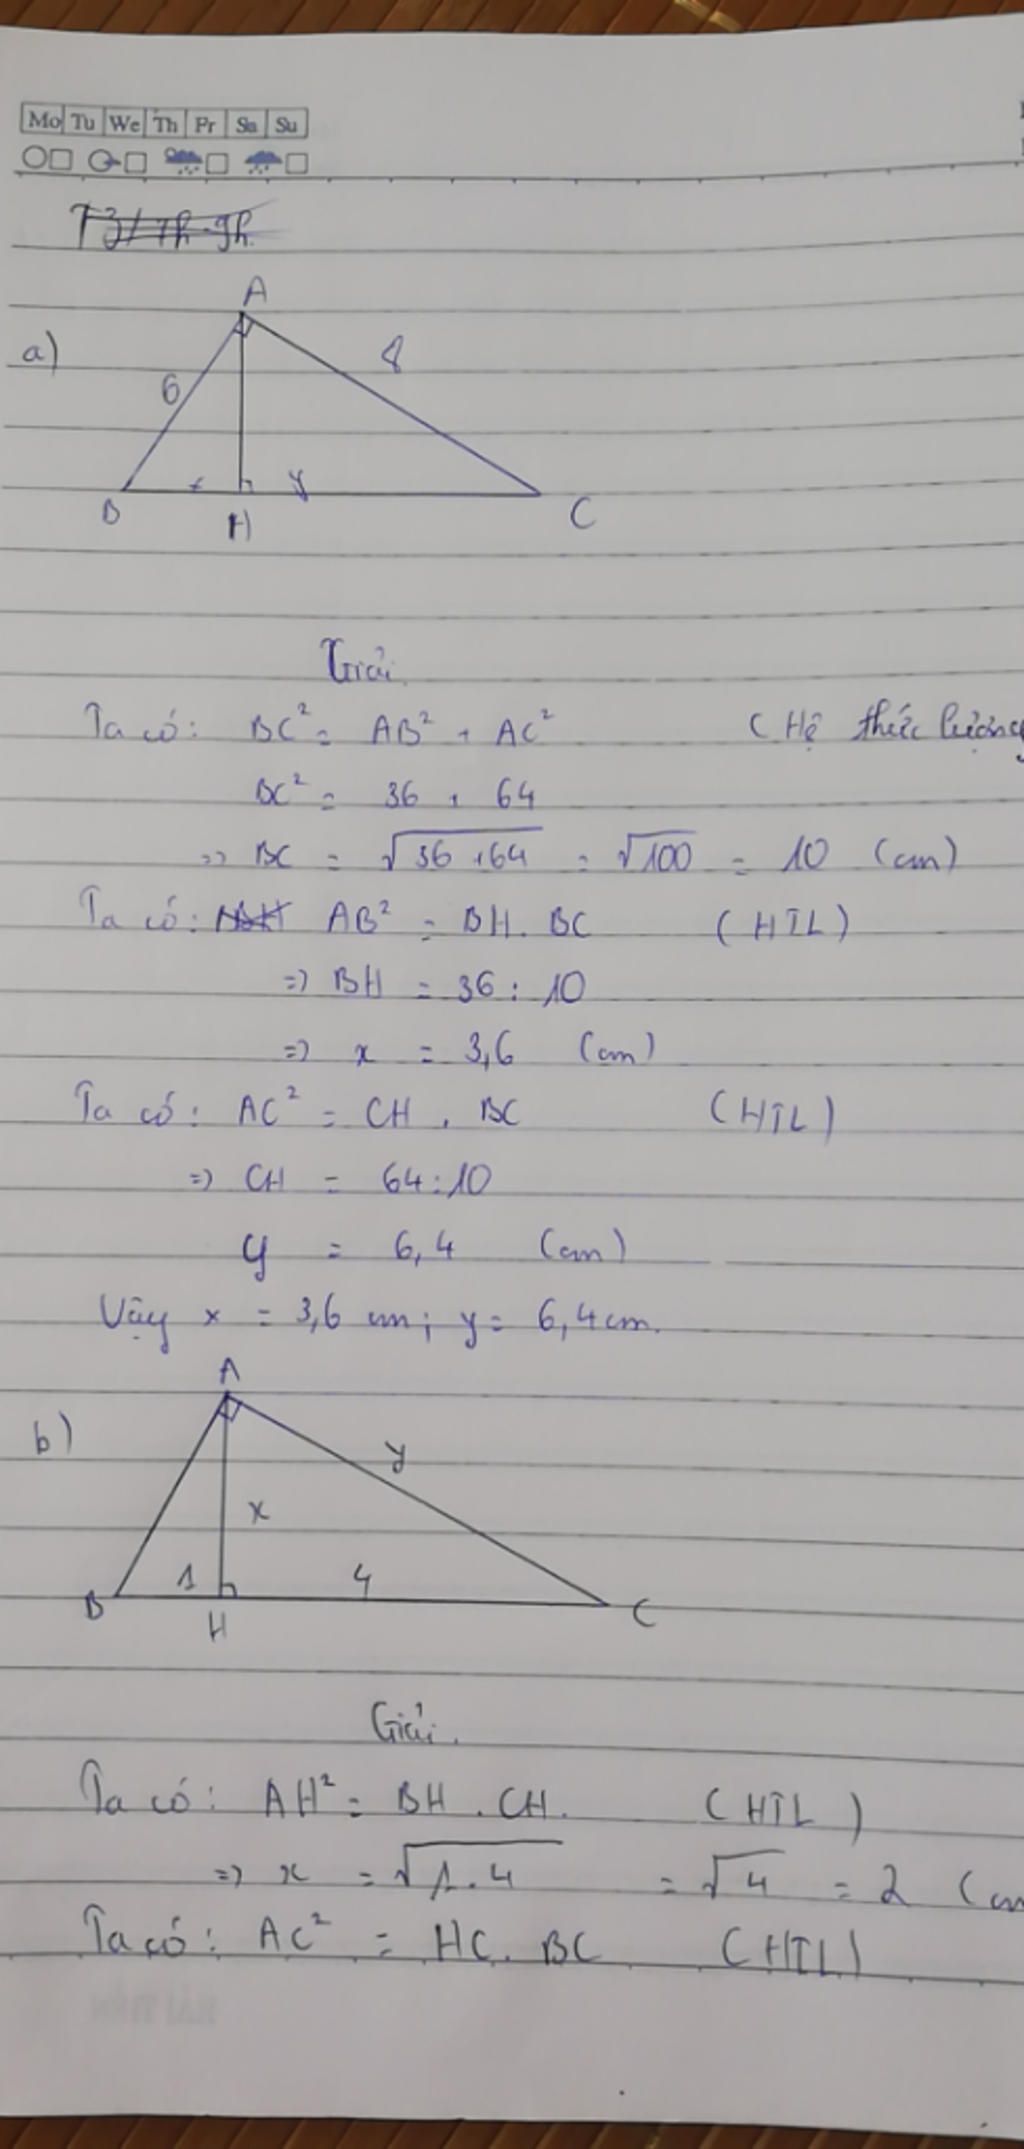 Mo Tu We Th Fr Sa Su
A
a)
6
8
B
x
H
y
C
Giải.
Ta có: BC² = AB² + AC² (Hệ thức lượng
BC² = 36 + 64
=> BC = √36+64 = √100 = 10 (cm)
Ta có: AB² = BH. BC (HTL)
=> BH = 36 : 10
=> x = 3,6 (cm)
Ta có: AC² = CH . BC (HTL)
=> CH = 64:10
y = 6,4 (cm)
Vậy x = 3,6 cm; y = 6,4cm.
A
b)
y
x
1
4
B
H
C
Giải.
Ta có: AH² = BH . CH. (HTL)
=> x = √1.4 = √4 = 2 (cm
Ta có: AC² = HC. BC (HTL)